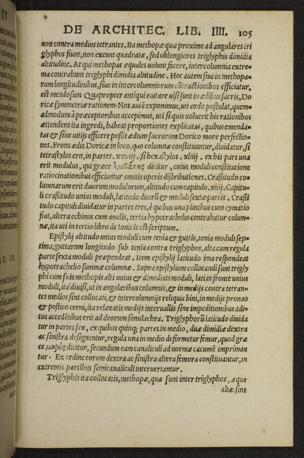 DE ARCHITEC. LIB. IIII. 105
non contra medios tetrantes. Ita methopæ quæ proximæ ad angulares tri
glyphos fiunt, non exeunt quadratæ, sed oblongiores triglyphis dimidia
altitudine. At qui methopas æquales volunt facere, intercolumnia extre-
ma contrahunt triglyphi dimidia altitudine. Hoc autem siue in methopa-
rum longitudinibus, siue in intercolumniorum contractionibus efficitur,
est mendosum. Quapropter antiqui euitare visi sunt in ædibus sacris, Do
ricæ symmetriæ rationem. Nos autem exponimus, uti ordo postulat, quem-
admodum à præceptoribus accepimus, uti si quis voluerit his rationibus
attendens ita ingredi, habeat proportiones explicatas, quibus emenda-
tas & sine vitijs efficere possit ædium sacrarum Dorico more perfectio-
nes. Frons ædis Doricæ in loco, quo columnæ constituuntur, diuidatur, si
tetrastylos erit, in partes, xxviij. si hexastylos, xliij. ex his pars una
erit modulus, qui græcè dicitur, cuius moduli constitutione
ratiocinationibus efficiuntur omnis operis distributiones. Crassitudo co-
lumnarum erit duorum modulorum, altitudo cum capitulo, xiiij. Capitu-
li crassitudo unius moduli, latitudo duorum & moduli sextæ partis. Crassi
tudo capituli diuidatur in partes tres, è quibus una plinthus cum cymatio
fiat, altera echinus cum anulis, tertia hypotrachelio contrahatur colum-
na, ita uti in tertio libro de Ionicis est scriptum.
Epistylij altitudo unius moduli cum tænia & guttis, tænia moduli sep-
tima, guttarum longitudo sub tænia contra triglyphos, alta cum regula
parte sexta moduli præpendeat, item epistylij latitudo ima respondeat
hypotrachelio summæ columnæ. Supra epistylium collocandi sunt trigly
phi cum suis methopis alti unius & dimidiati moduli, lati in fronte unius
moduli, ita diuisi, ut in angularibus columnis, & in medijs contra tetran-
tes medios sint collocati, & intercolumnijs reliquis bini, in medijs pronao
& postico terni, ita relaxatis medijs interuallis sine impeditionibus adi-
tus accedentibus erit ad deorum simulachra. Triglyphorum latitudo diuida
tur in partes sex, ex quibus quinque partes in medio, duæ dimidiæ dextra
ac sinistra designentur, regula una in medio deformetur femur, quod græ
cè dicitur, secundum eam canaliculi ad normæ cacumen impriman
tur. Ex ordine eorum dextra ac sinistra altera femora constituantur, in
extremis partibus semicanaliculi interuertantur.
Triglyphis ita collocatis, methopæ, quæ sunt inter triglyphos, æque
altæ sint